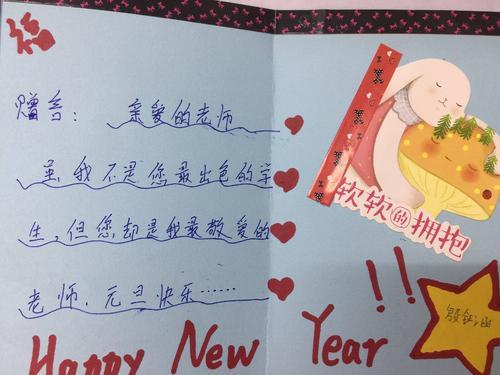 福
赠言：亲爱的老师
虽我不是您最出色的学
生,但您却是我最敬爱的
老师、元旦快乐……
软软的拥抱
Happy New Year!!